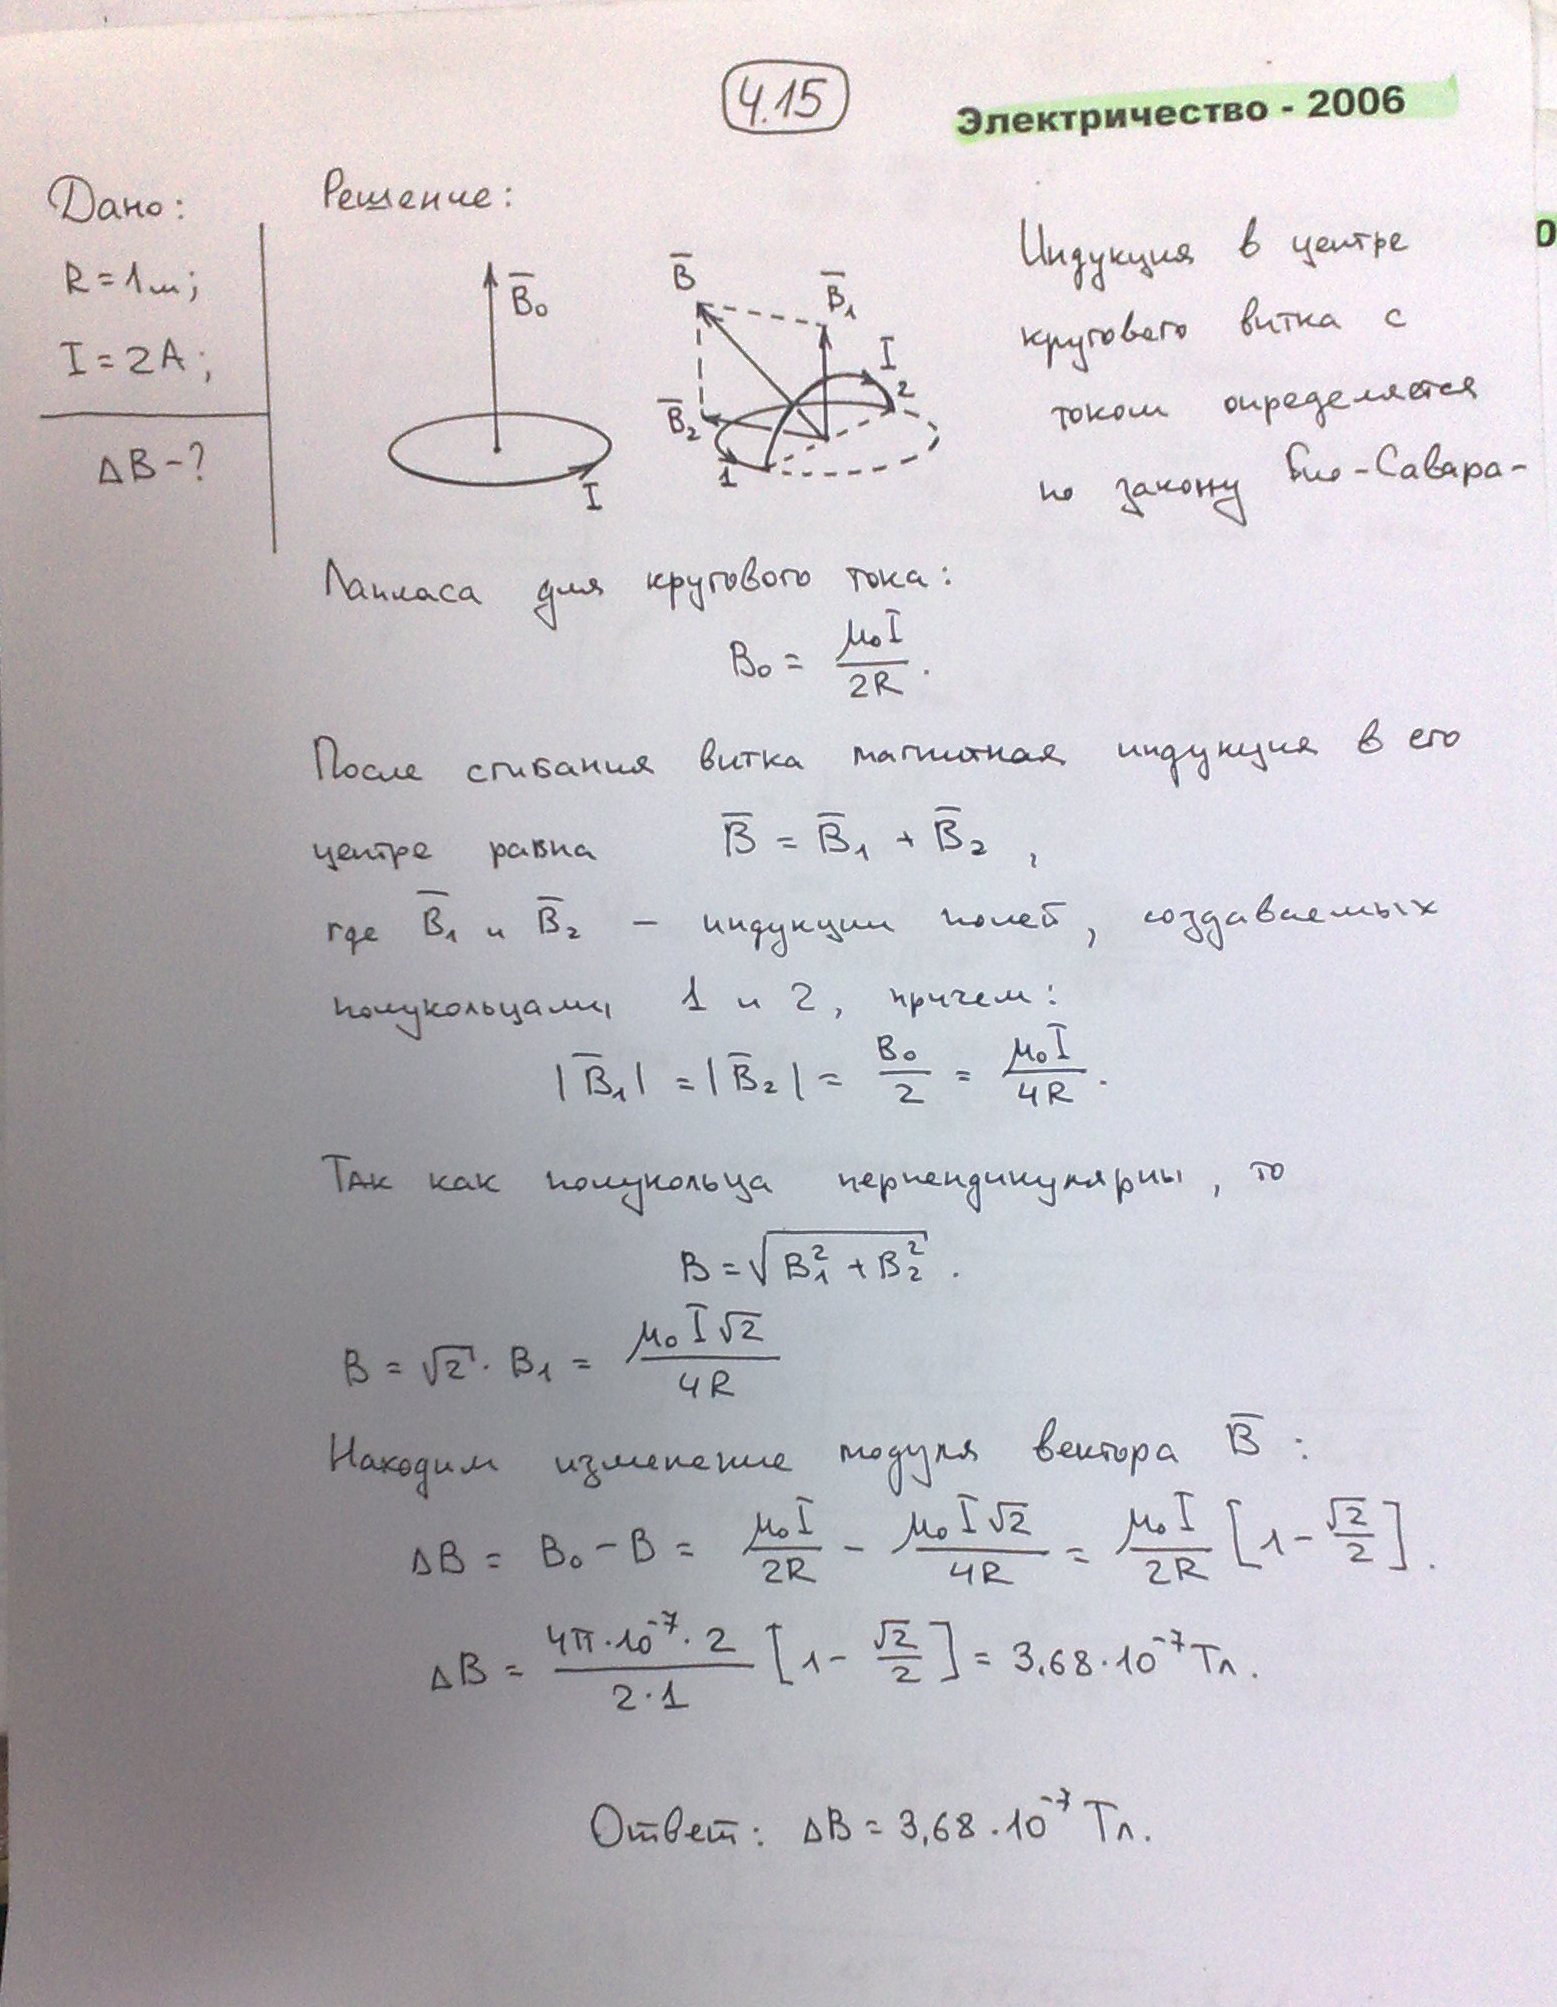 4.15
Электричество - 2006
Дано:
R = 1м;
I = 2А;
ΔB - ?
Решение:
B̅₀
I
B̅
B̅₁
I
2
B̅₂
1
Индукция в центре
кругового витка с
током определяется
по закону Био-Савара-
0
Лапласа для кругового тока:
B₀ = μ₀I / 2R.
После сгибания витка магнитная индукция в его
центре равна B̅ = B̅₁ + B̅₂,
где B̅₁ и B̅₂ – индукции полей, создаваемых
полукольцами 1 и 2, причем:
|B̅₁| = |B̅₂| = B₀/2 = μ₀I / 4R.
Так как полукольца перпендикулярны, то
B = √(B₁² + B₂²).
B = √2 · B₁ = μ₀I√2 / 4R
Находим изменение модуля вектора B̅:
ΔB = B₀ - B = μ₀I / 2R - μ₀I√2 / 4R = μ₀I / 2R [1 - √2/2].
ΔB = 4π·10⁻⁷·2 / 2·1 [1 - √2/2] = 3,68·10⁻⁷ Тл.
Ответ: ΔB = 3,68·10⁻⁷ Тл.